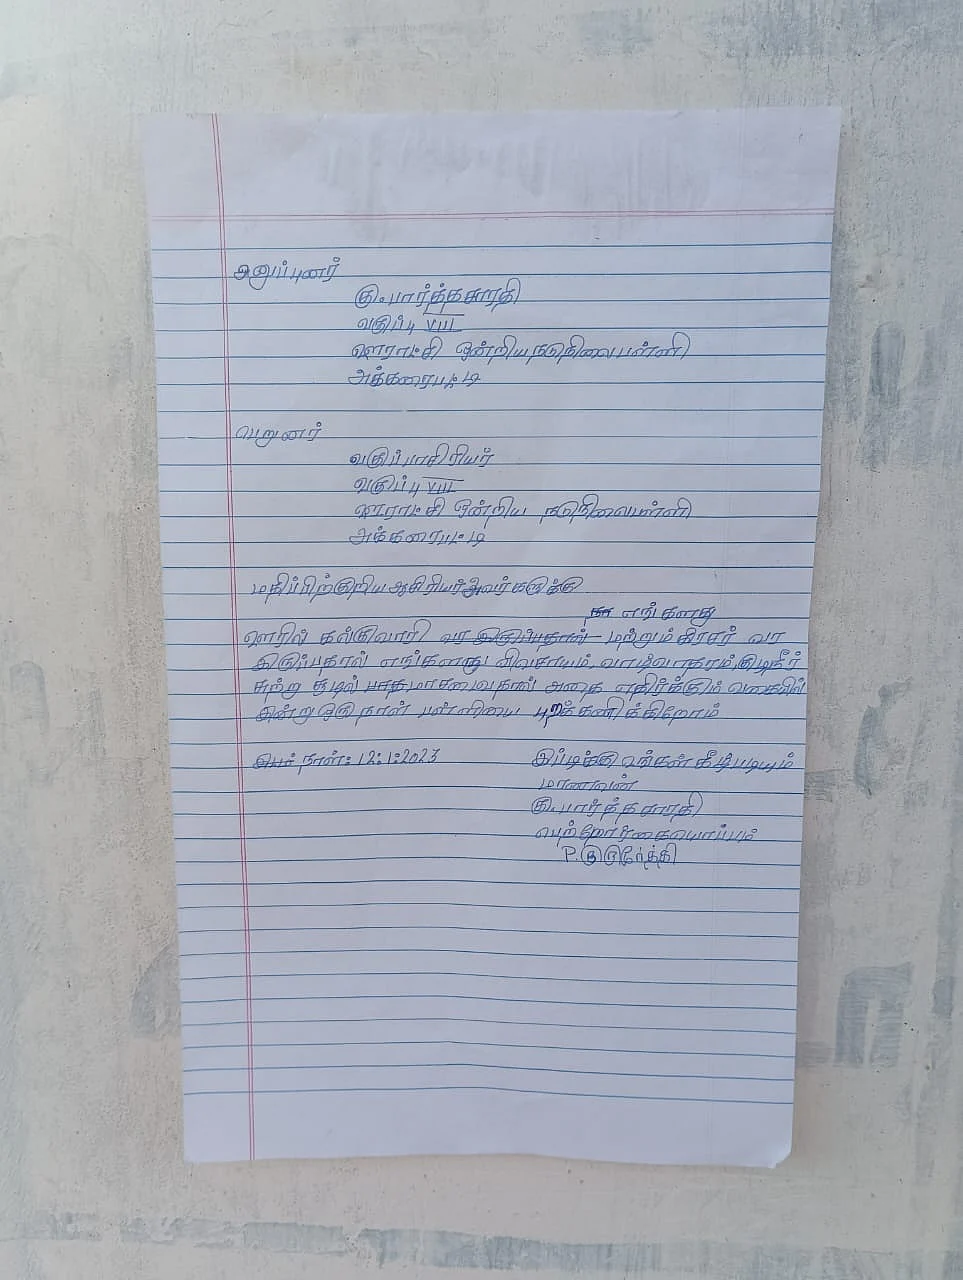 அனுப்புனர்
கு.பார்த்தசாரதி
வகுப்பு VIII
ஊராட்சி ஒன்றிய நடுநிலைபள்ளி
அக்கரைபட்டி
பெறுனர்
வகுப்பாசிரியர்
வகுப்பு VIII
ஊராட்சி ஒன்றிய நடுநிலைபள்ளி
அக்கரைபட்டி
மதிப்பிற்குரிய ஆசிரியர் அவர்களுக்கு
எங்களது
ஊரில் கல்குவாரி மற்றும் கிரசர் வர
இருப்பதால் எங்களது விவசாயம், வாழ்வாதாரம், குடிநீர்
சுற்று சூழல் பாதுமாசுவைதால் அதை எதிர்க்கும் வகையில்
இன்று ஒரு நாள் பள்ளியை புறக்கணிக்கிறோம்
நாள்: 12:1:2023 இப்படிக்கு உங்கள் கீழ்படியும்
மாணவன்
கு.பார்த்தசாரதி
பெற்றோர் கையொப்பம்
P.